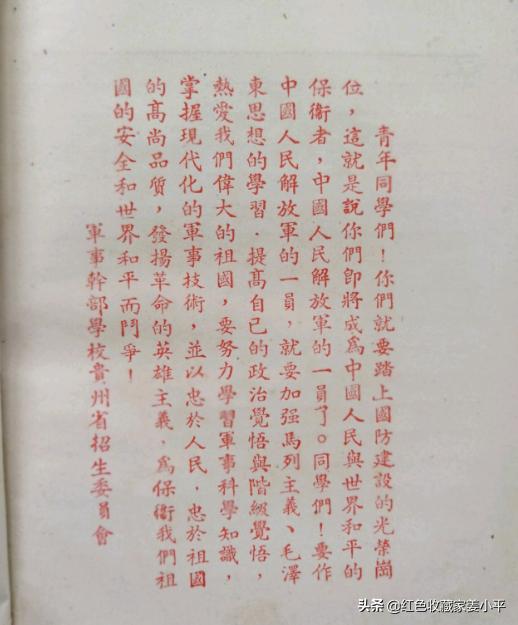 青年同學們！你們就要踏上國防建設的光榮崗
位，這就是說你們即將成為中國人民與世界和平的
保衛者，中國人民解放軍的一員了。同學們！要作
中國人民解放軍的一員，就要加强馬列主義、毛澤
東思想的學習．提高自己的政治覺悟與階級覺悟，
熱愛我們偉大的祖國，要努力學習軍事科學知識，
掌握現代化的軍事技術，並以忠於人民．忠於祖國
的高尚品質，發揚革命的英雄主義．為保衛我們祖
國的安全和世界和平而鬥爭！
軍事幹部學校貴州省招生委員會
头条 @红色收藏家姜小平